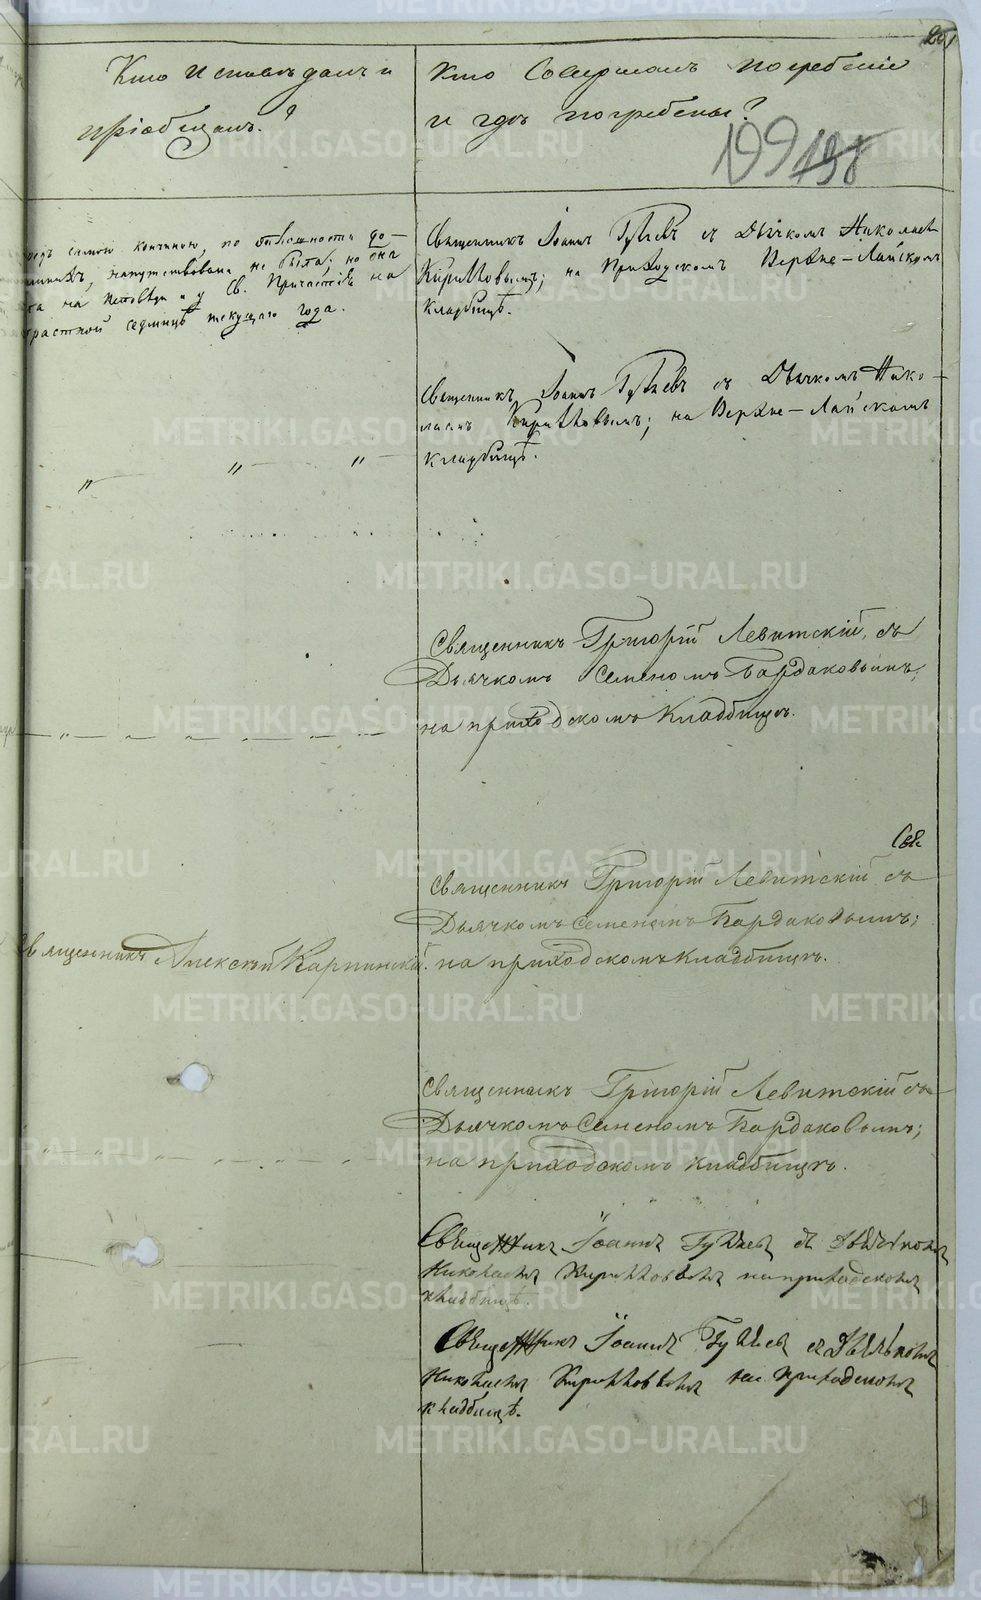 Кто исповѣдалъ и
пріобщалъ?
Кто совершалъ погребеніе
и гдѣ погребены?
199 198
самой кончиною, по
напутствована не была; но она
на исповѣди и у Св. Причастія на
страстной седмицѣ текущаго года.
Священникъ Іоаннъ съ Дьячкомъ Николаемъ
Кирилловымъ; на Приходскомъ Верхне-Лайскомъ
кладбищѣ.
Священникъ Іоаннъ съ Дьячкомъ Нико-
лаемъ Кирилловымъ; на Верхне-Лайскомъ
кладбищѣ.
" " "
Священникъ Григорій Левитскій, съ
Дьячкомъ Семеномъ Бардаковымъ,
на приходскомъ кладбищѣ.
Свя
Священникъ Григорій Левитскій съ
Дьячкомъ Семеномъ Бардаковымъ;
Священникъ Алексѣй Карпинскій.
на приходскомъ кладбищѣ.
Священникъ Григорій Левитскій съ
Дьячкомъ Семеномъ Бардаковымъ;
на приходскомъ кладбищѣ.
Священникъ Іоаннъ съ Дьячкомъ
Николаемъ Кирилловымъ на приходскомъ
кладбищѣ.
Священникъ Іоаннъ съ Дьячкомъ
Николаемъ Кирилловымъ на приходскомъ
кладбищѣ.
METRIKI.GASO-URAL.RU